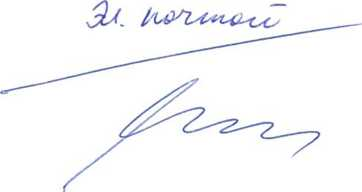 Эл. почтой